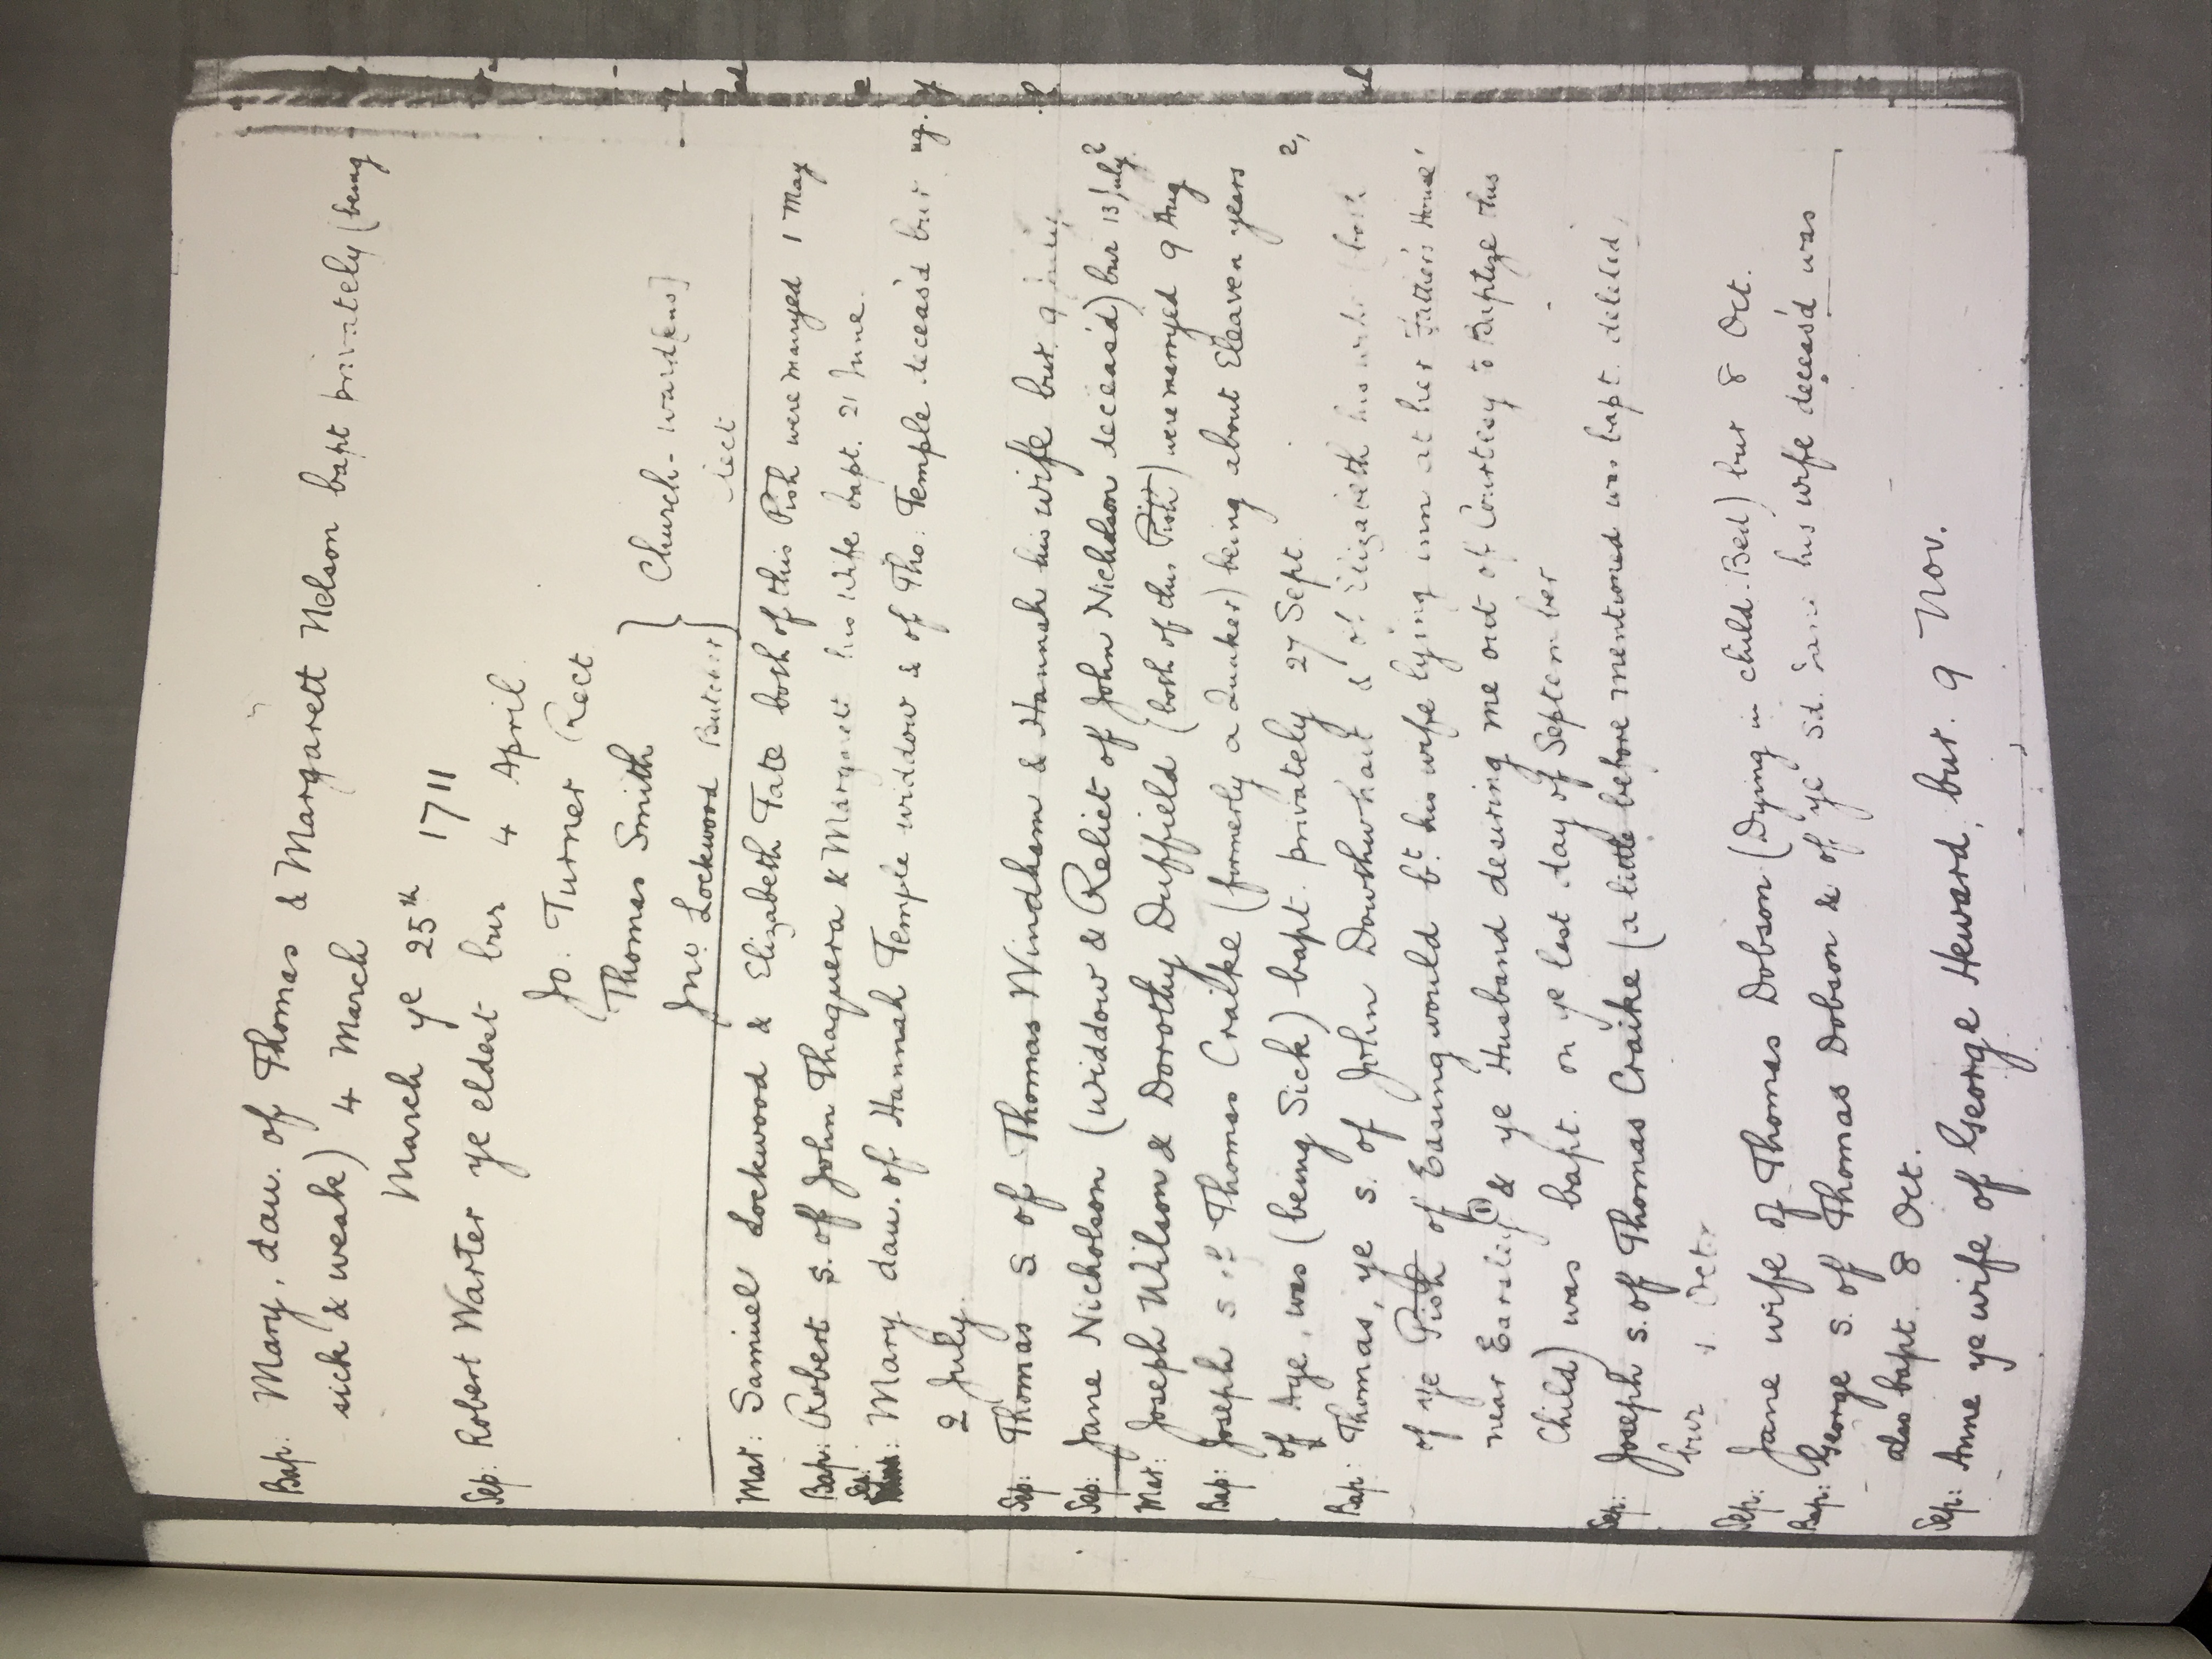 Bap: Mary, dau. of Thomas & Margarett Nelson bapt privately (being
sick & weak) 4 March
March ye 25th 1711
Sep: Robert Warter ye eldest bur 4 April.
Jo: Turner Rect
Thomas Smith
Jno. Lockwood Butcher } Church-ward[ens]
Mar: Samuel Lockwood & Elizabeth Tate both of this Pish were marryed 1 May
Bap: Robert s. of John Thaquera & Margarett his wife bapt. 21 June.
Sep: Mary dau. of Hannah Temple widdow & of Tho: Temple deceas'd bur
2 July.
Sep: Thomas s. of Thomas Windham & Hannah his wife bur. 9 July
Sep: Jane Nicholson (widdow & Relict of John Nicholson deceas'd) bur 13 July
Mar: Joseph Wilson & Dorothy Duffield (both of this Pish) were marryed 9 Aug
Bap: Joseph s. of Thomas Craike (formerly a Quaker) being about Eleaven years
of Age, was (being Sick) bapt. privately 27 Sept.
Bap: Thomas, ye s. of John Dowthwhait & of Elizabeth his wife (both
of ye Pish of Easingwould bt. his wife lying inn at her Father's House
near Earsley (1) & ye Husband desiring me out of Courtesy to Baptize this
Child) was bapt. on ye last day of September
Sep: Joseph s. of Thomas Craike (a little before mentioned was bapt. deleted)
bur 1. Octr
Sep: Jane wife of Thomas Dobson (Dying in child-Bed) bur 8 Oct.
Bap: George s. of Thomas Dobson & of ye sd. Jane his wife deceas'd was
also bapt. 8 Oct.
Sep: Anne ye wife of George Heward, bur. 9 Nov.